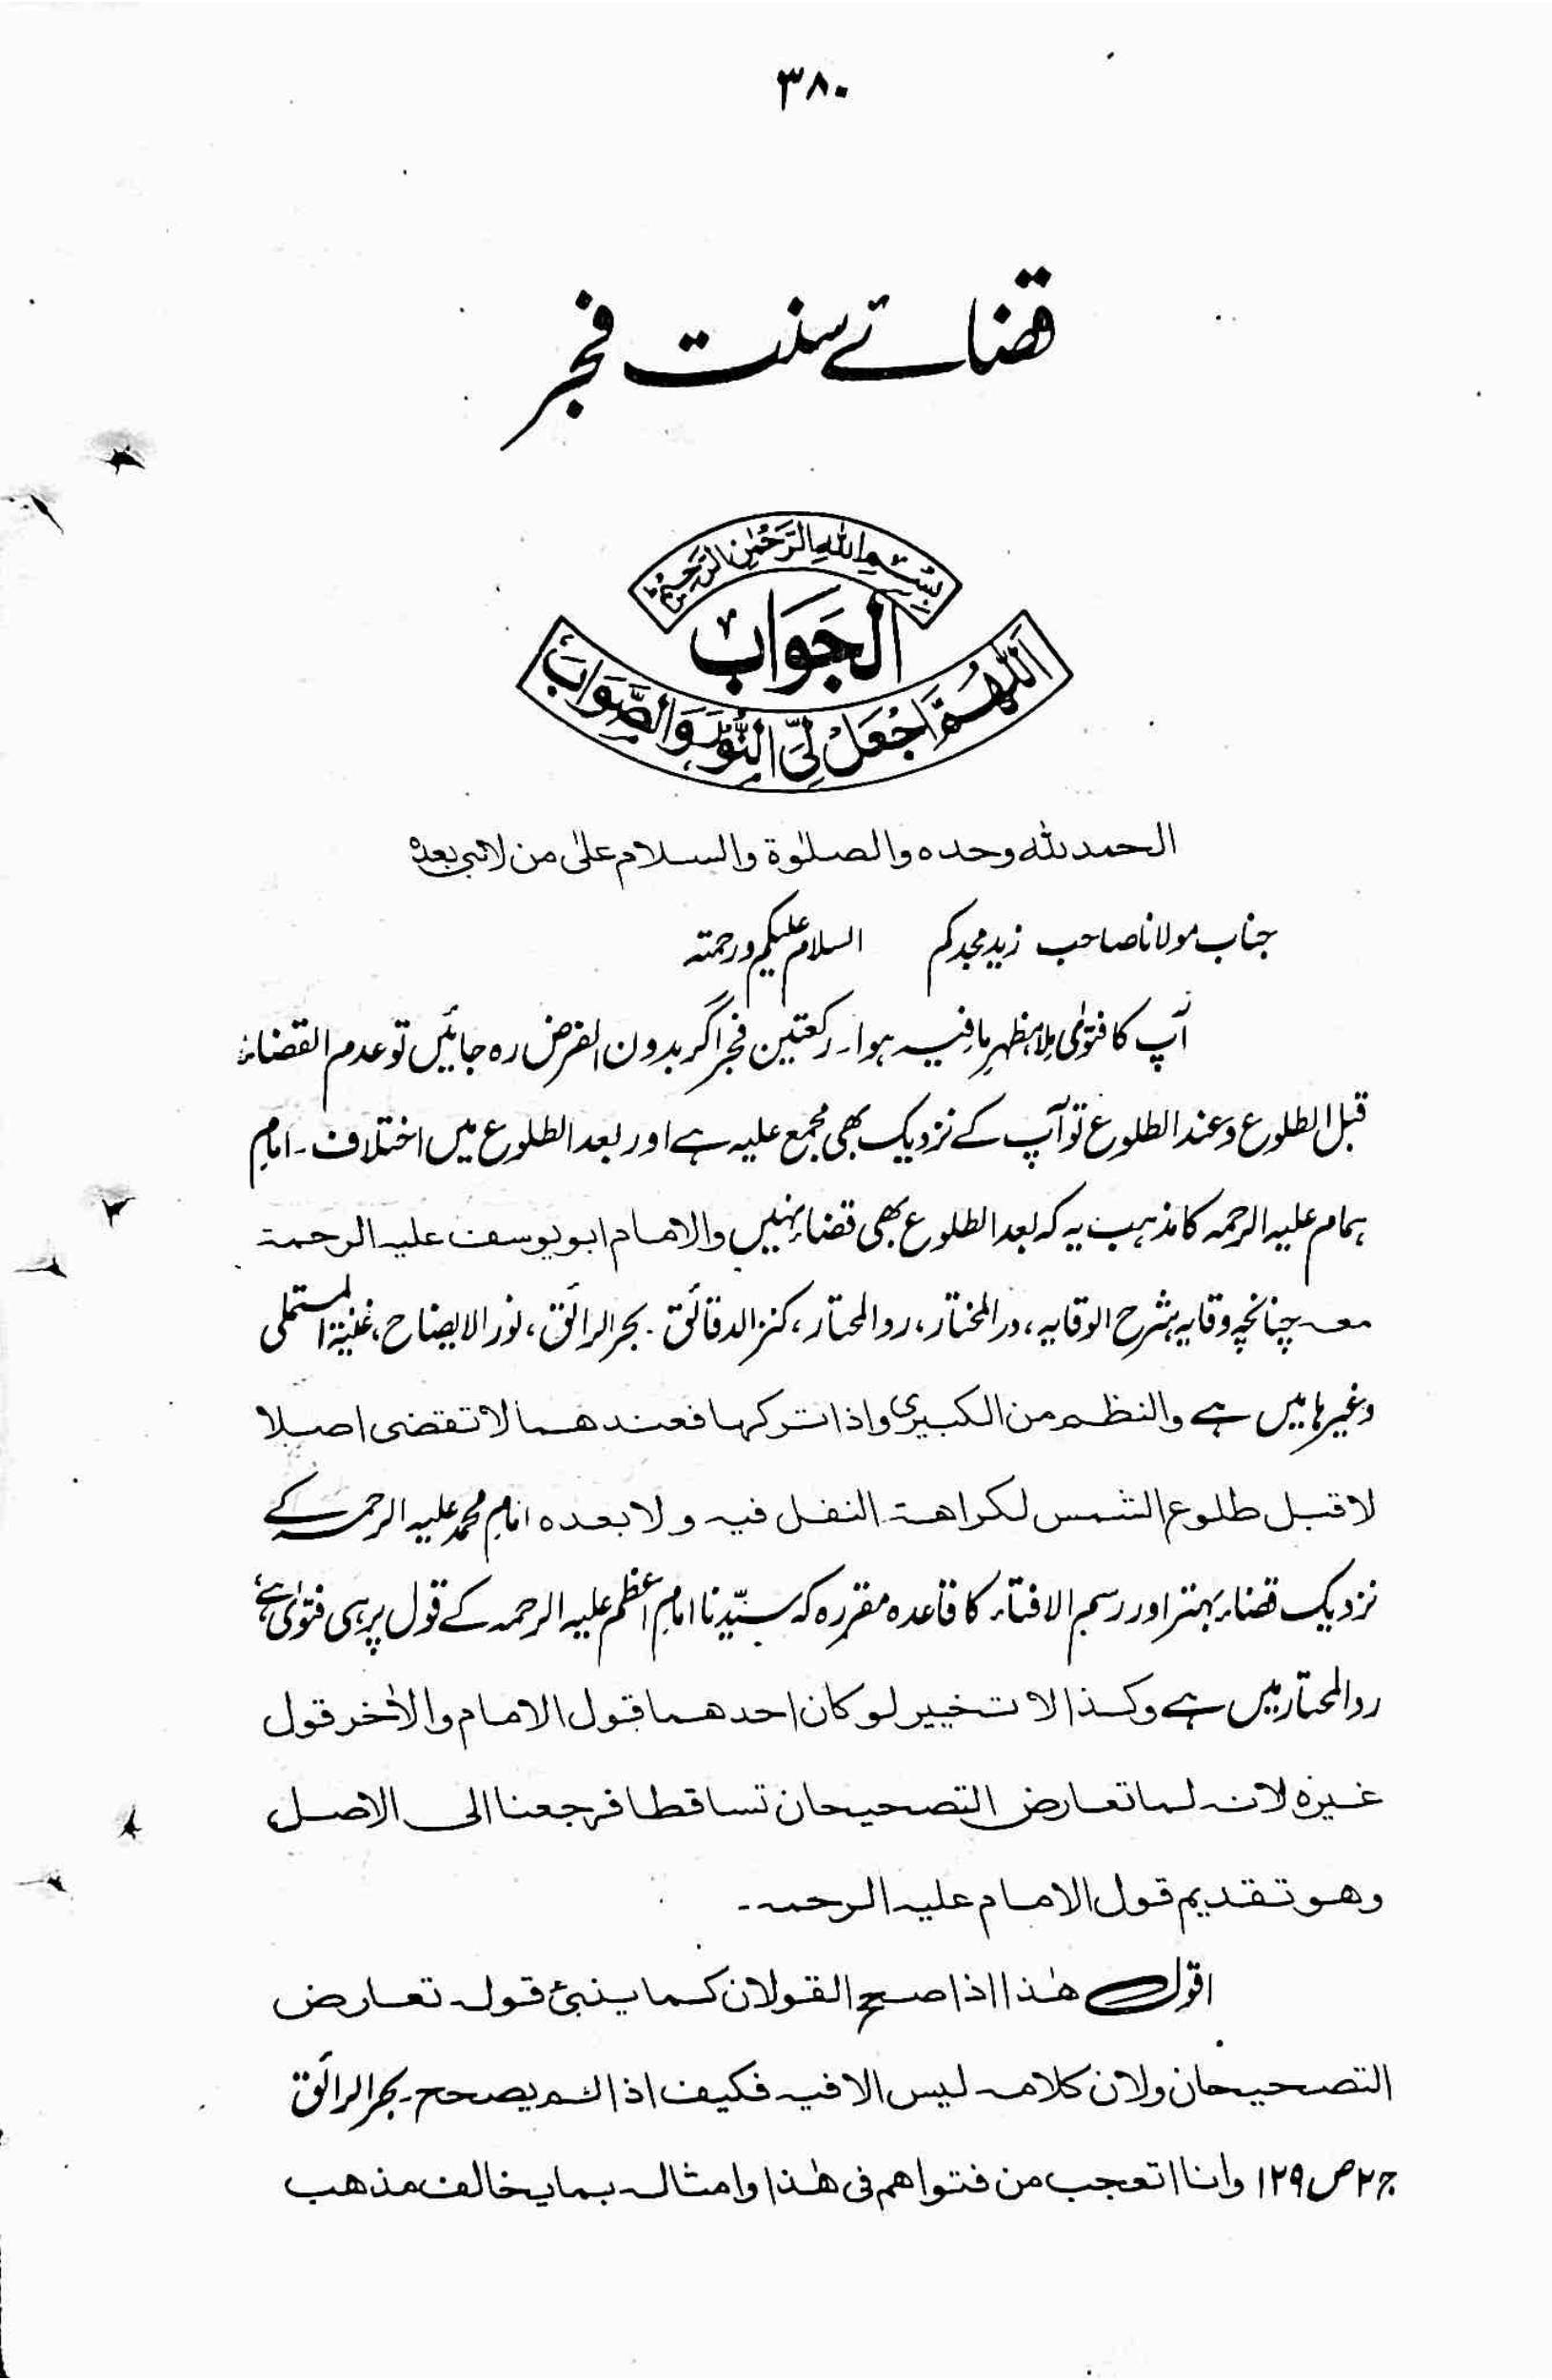 ۳۸۰
قضائے سنت فجر
بِسْمِ اللّٰهِ الرَّحْمٰنِ الرَّحِيْمِ
اَلجَوَابُ
اَللّٰهُمَّ اجْعَلْ لِّيَ النُّوْرَ وَالصَّوَابَ
الحمد للّٰه وحده والصلوٰة والسلام علیٰ من لا نبی بعدہ
جناب مولانا صاحب زید مجدکم السلام علیکم ورحمتہ
آپ کا فتویٰ مظہرِ مافیہ ہوا۔ رکعتین فجر اگر بدون الفرض رہ جائیں تو عدم القضاء
قبل الطلوع وعند الطلوع تو آپ کے نزدیک بھی مجمع علیہ ہے اور بعد الطلوع میں اختلاف۔ امامِ
ہمام علیہ الرحمہ کا مذہب یہ کہ بعد الطلوع بھی قضاء نہیں والامام ابو یوسف علیہ الرحمۃ
معہ چنانچہ وقایہ، شرح الوقایہ، در المختار، رد المحتار، کنز الدقائق۔ بحر الرائق، نور الایضاح، غنیۃ المستملی
وغیرہا میں ہے والنظم من الکبیری واذا ترکہا فعندھما لا تقضی اصلا
لا قبل طلوع الشمس لکراھۃ النفل فیہ ولا بعدہ امام محمد علیہ الرحمہ کے
نزدیک قضاء بہتر اور رسم الافتاء کا قاعدہ مقررہ کہ سیّدنا امام اعظم علیہ الرحمہ کے قول پر ہی فتویٰ ہے
رد المحتار میں ہے وکذا لا تخییر لو کان احدھما قول الامام والاٰخر قول
غیرہ لانہ لما تعارض التصحیحان تساقطا فرجعنا الی الاصل
وھو تقدیم قول الامام علیہ الرحمہ۔
اقول ھٰذا اذا صح القولان کما ینبئ قولہ تعارض
التصحیحان ولان کلامہ لیس الا فیہ فکیف اذا لم یصحح۔ بحر الرائق
ج ۲ ص ۱۲۹ وانا اتعجب من فتواھم فی ھٰذا وامثالہ بما یخالف مذھب